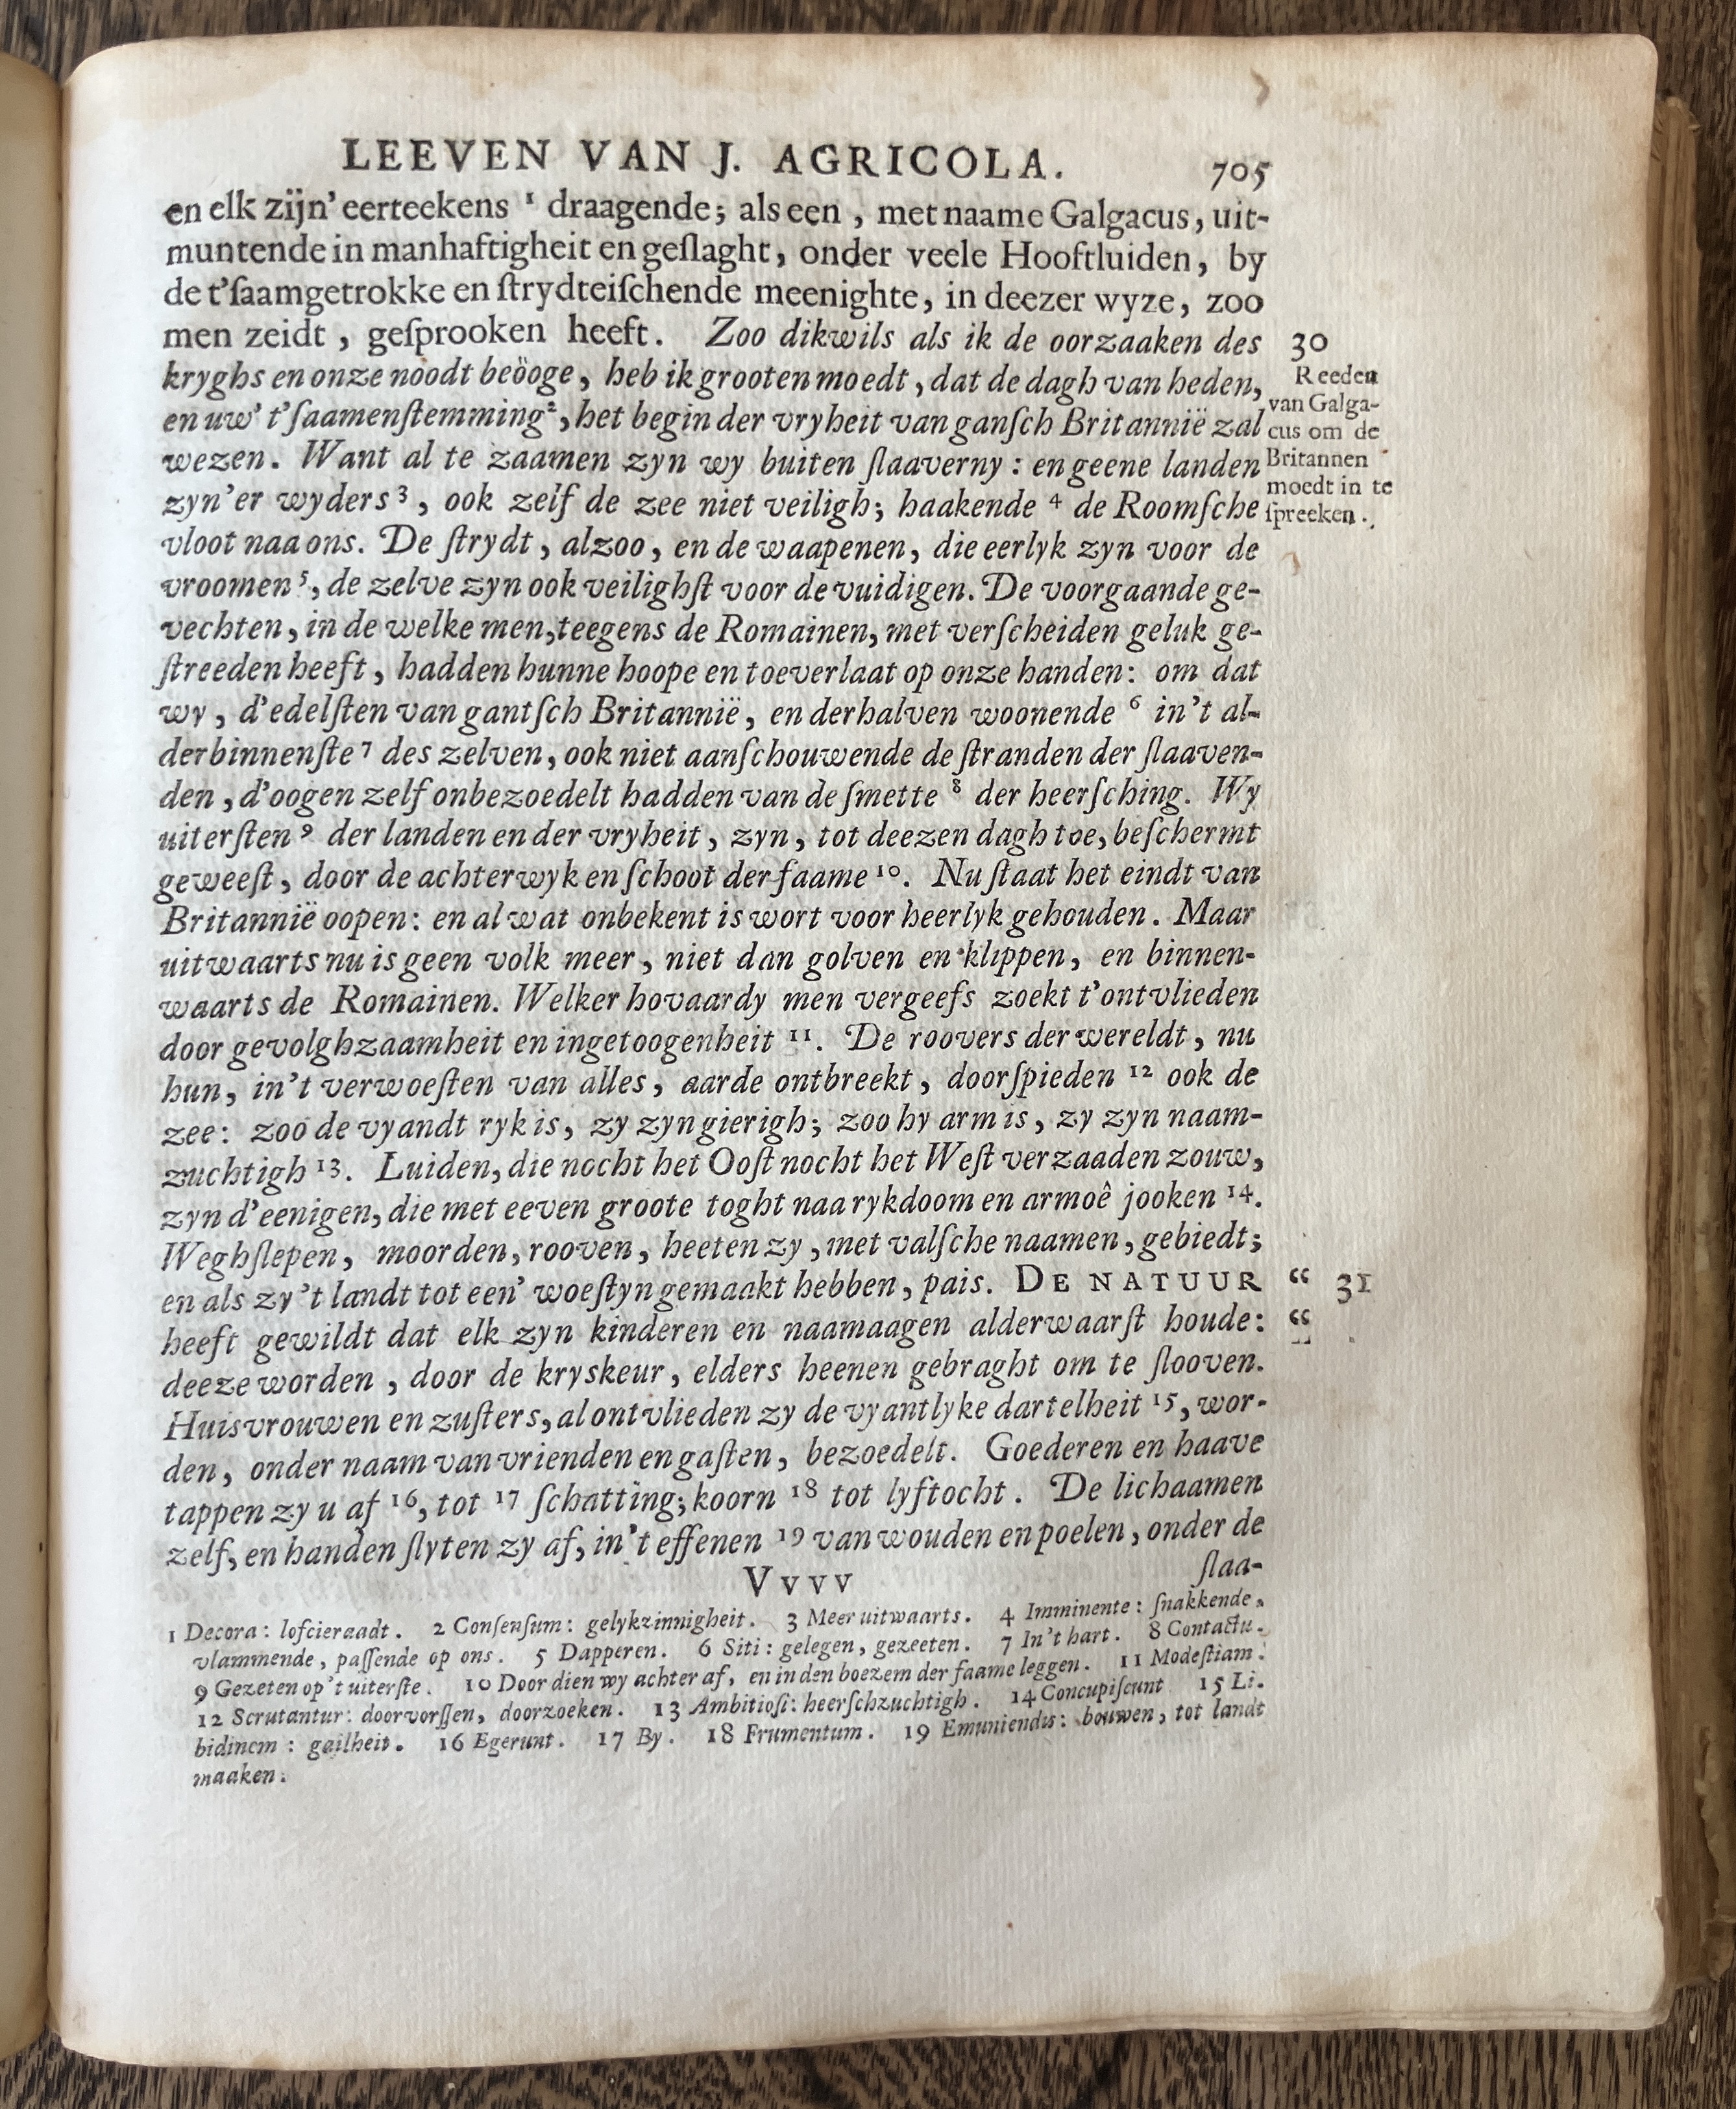 LEEVEN VAN J. AGRICOLA. 705
en elk zijn' eerteekens ¹ draagende; als een, met naame Galgacus, uit-
muntende in manhaftigheit en geſlaght, onder veele Hooftluiden, by
de t'ſaamgetrokke en ſtrydteiſchende meenighte, in deezer wyze, zoo
men zeidt, geſprooken heeft. Zoo dikwils als ik de oorzaaken des
kryghs en onze noodt beöoge, heb ik grooten moedt, dat de dagh van heden,
en uw' t'ſaamenſtemming², het begin der vryheit van ganſch Britannië zal
wezen. Want al te zaamen zyn wy buiten ſlaaverny: en geene landen
zyn'er wyders ³, ook zelf de zee niet veiligh; haakende ⁴ de Roomſche
vloot naa ons. De ſtrydt, alzoo, en de waapenen, die eerlyk zyn voor de
vroomen ⁵, de zelve zyn ook veilighſt voor de vuidigen. De voorgaande ge-
vechten, in de welke men, teegens de Romainen, met verſcheiden geluk ge-
ſtreeden heeft, hadden hunne hoope en toeverlaat op onze handen: om dat
wy, d'edelſten van gantſch Britannië, en derhalven woonende ⁶ in't al-
derbinnenſte ⁷ des zelven, ook niet aanſchouwende de ſtranden der ſlaaven-
den, d'oogen zelf onbezoedelt hadden van de ſmette ⁸ der heerſching. Wy
uiterſten ⁹ der landen en der vryheit, zyn, tot deezen dagh toe, beſchermt
geweeſt, door de achterwyk en ſchoot der faame ¹⁰. Nu ſtaat het eindt van
Britannië oopen: en al wat onbekent is wort voor heerlyk gehouden. Maar
uitwaarts nu is geen volk meer, niet dan golven en klippen, en binnen-
waarts de Romainen. Welker hovaardy men vergeefs zoekt t'ontvlieden
door gevolghzaamheit en ingetoogenheit ¹¹. De roovers der wereldt, nu
hun, in't verwoeſten van alles, aarde ontbreekt, doorſpieden ¹² ook de
zee: zoo de vyandt ryk is, zy zyn gierigh; zoo hy arm is, zy zyn naam-
zuchtigh ¹³. Luiden, die nocht het Ooſt nocht het Weſt verzaaden zouw,
zyn d'eenigen, die met eeven groote toght naa rykdoom en armoê jooken ¹⁴.
Weghſlepen, moorden, rooven, heeten zy, met valſche naamen, gebiedt;
en als zy 't landt tot een' woeſtyn gemaakt hebben, pais. DE NATUUR
heeft gewildt dat elk zyn kinderen en naamaagen alderwaarſt houde:
deeze worden, door de kryskeur, elders heenen gebraght om te ſlooven.
Huisvrouwen en zuſters, al ontvlieden zy de vyantlyke dartelheit ¹⁵, wor-
den, onder naam van vrienden en gaſten, bezoedelt. Goederen en haave
tappen zy u af ¹⁶, tot ¹⁷ ſchatting; koorn ¹⁸ tot lyftocht. De lichaamen
zelf, en handen ſlyten zy af, in't effenen ¹⁹ van wouden en poelen, onder de
Vvvv ſlaa-
30
Reeden
van Galga-
cus om de
Britannen
moedt in te
ſpreeken.
“ 31
“
1 Decora: lofcieraadt. 2 Conſenſum: gelykzinnigheit. 3 Meer uitwaarts. 4 Imminente: ſnakkende,
vlammende, paſſende op ons. 5 Dapperen. 6 Siti: gelegen, gezeeten. 7 In't hart. 8 Contactu.
9 Gezeten op't uiterſte. 10 Door dien wy achter af, en in den boezem der faame leggen. 11 Modeſtiam.
12 Scrutantur: doorvorſſen, doorzoeken. 13 Ambitioſi: heerſchzuchtigh. 14 Concupiſcunt 15 Li-
bidinem: gailheit. 16 Egerunt. 17 By. 18 Frumentum. 19 Emuniendis: bouwen, tot landt
maaken.